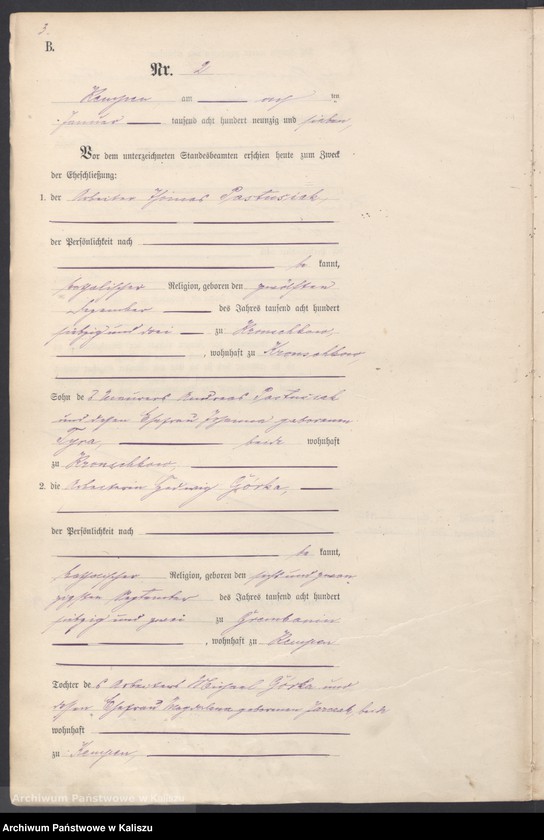 3.
B.
Nr. 2
Kempen am acht ten
Januar tausend acht hundert neunzig und sieben,
Vor dem unterzeichneten Standesbeamten erschien heute zum Zweck
der Eheschließung:
1. der Arbeiter Thomas Pastusiak,
der Persönlichkeit nach
be kannt,
katholischer Religion, geboren den zwölften
Dezember des Jahres tausend acht hundert
siebzig und drei zu Kronschkow,
, wohnhaft zu Kronschkow,
Sohn des Maurers Andreas Pastusiak
und dessen Ehefrau Johanna geborenen
Tyra, beide wohnhaft
zu Kronschkow,
2. die Arbeiterin Hedwig Górka,
der Persönlichkeit nach
be kannt,
katholischer Religion, geboren den sechs und zwan
zigsten September des Jahres tausend acht hundert
siebzig und zwei zu Grembanin
, wohnhaft zu Kempen
Tochter des Arbeiters Michael Górka und
dessen Ehefrau Magdalena geborenen beide
wohnhaft
zu Kempen,
Archiwum Państwowe w Kaliszu
Archiwum Państwowe w Kaliszu